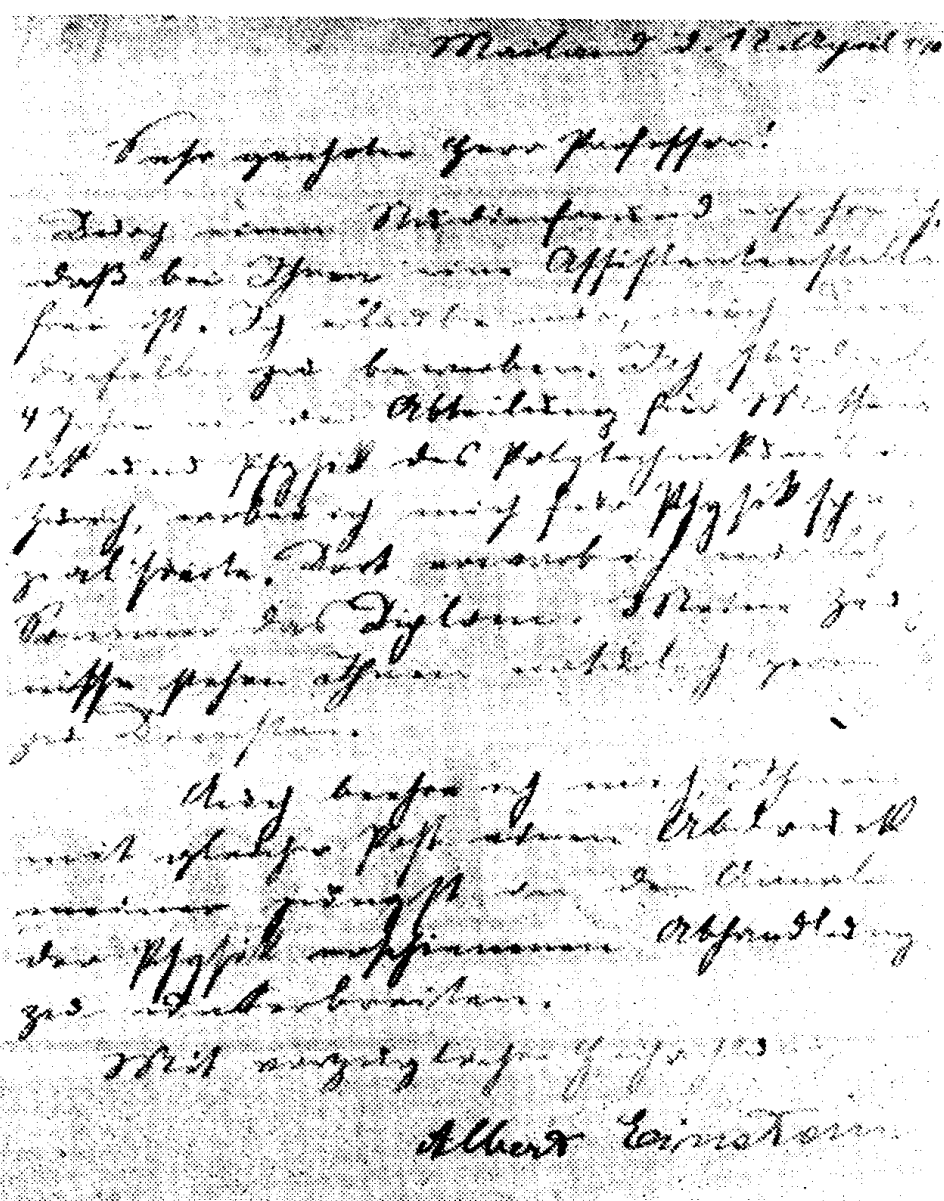 Mailand d. 12. April
Sehr geehrter Herr Professor!
Durch einen Studienfreund erfahre ich,
daß bei Ihnen eine Assistentenstelle
frei ist. Ich erlaube mir, mich um
dieselbe zu bewerben. Ich studierte
4 Jahre an der Abteilung für Mathema
tik und Physik des Polytechnikums in
Zürich, wobei ich mich für Physik spe
zialisierte. Dort erwarb ich mir
Sommer das Diplom. Meine Zeug
nisse stehen Ihnen natürlich gerne
zu Diensten.
Auch beehre ich mich, Ihnen
mit gleicher Post einen Abdruck
meiner jüngst in den Annalen
der Physik erschienenen Abhandlung
zu unterbreiten.
Mit vorzüglicher Hochachtung
Albert Einstein